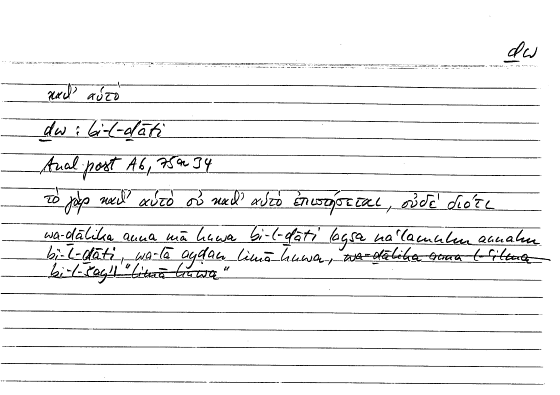 ḏw
καθ’ αὑτό
ḏw : bi-l-ḏāti
Anal post A6, 75a 34
τὸ γὰρ καθ’ αὑτὸ οὐ καθ’ αὑτὸ ἐπιστήσεται, οὐδὲ διότι
wa-ḏālika anna mā huwa bi-l-ḏāti laysa naʿlamuhu annahu
bi-l-ḏāti, wa-lā ayḍan limā huwa, wa-ḏālika anna l-ʿilma
bi-l-šayʾi "limā huwa"